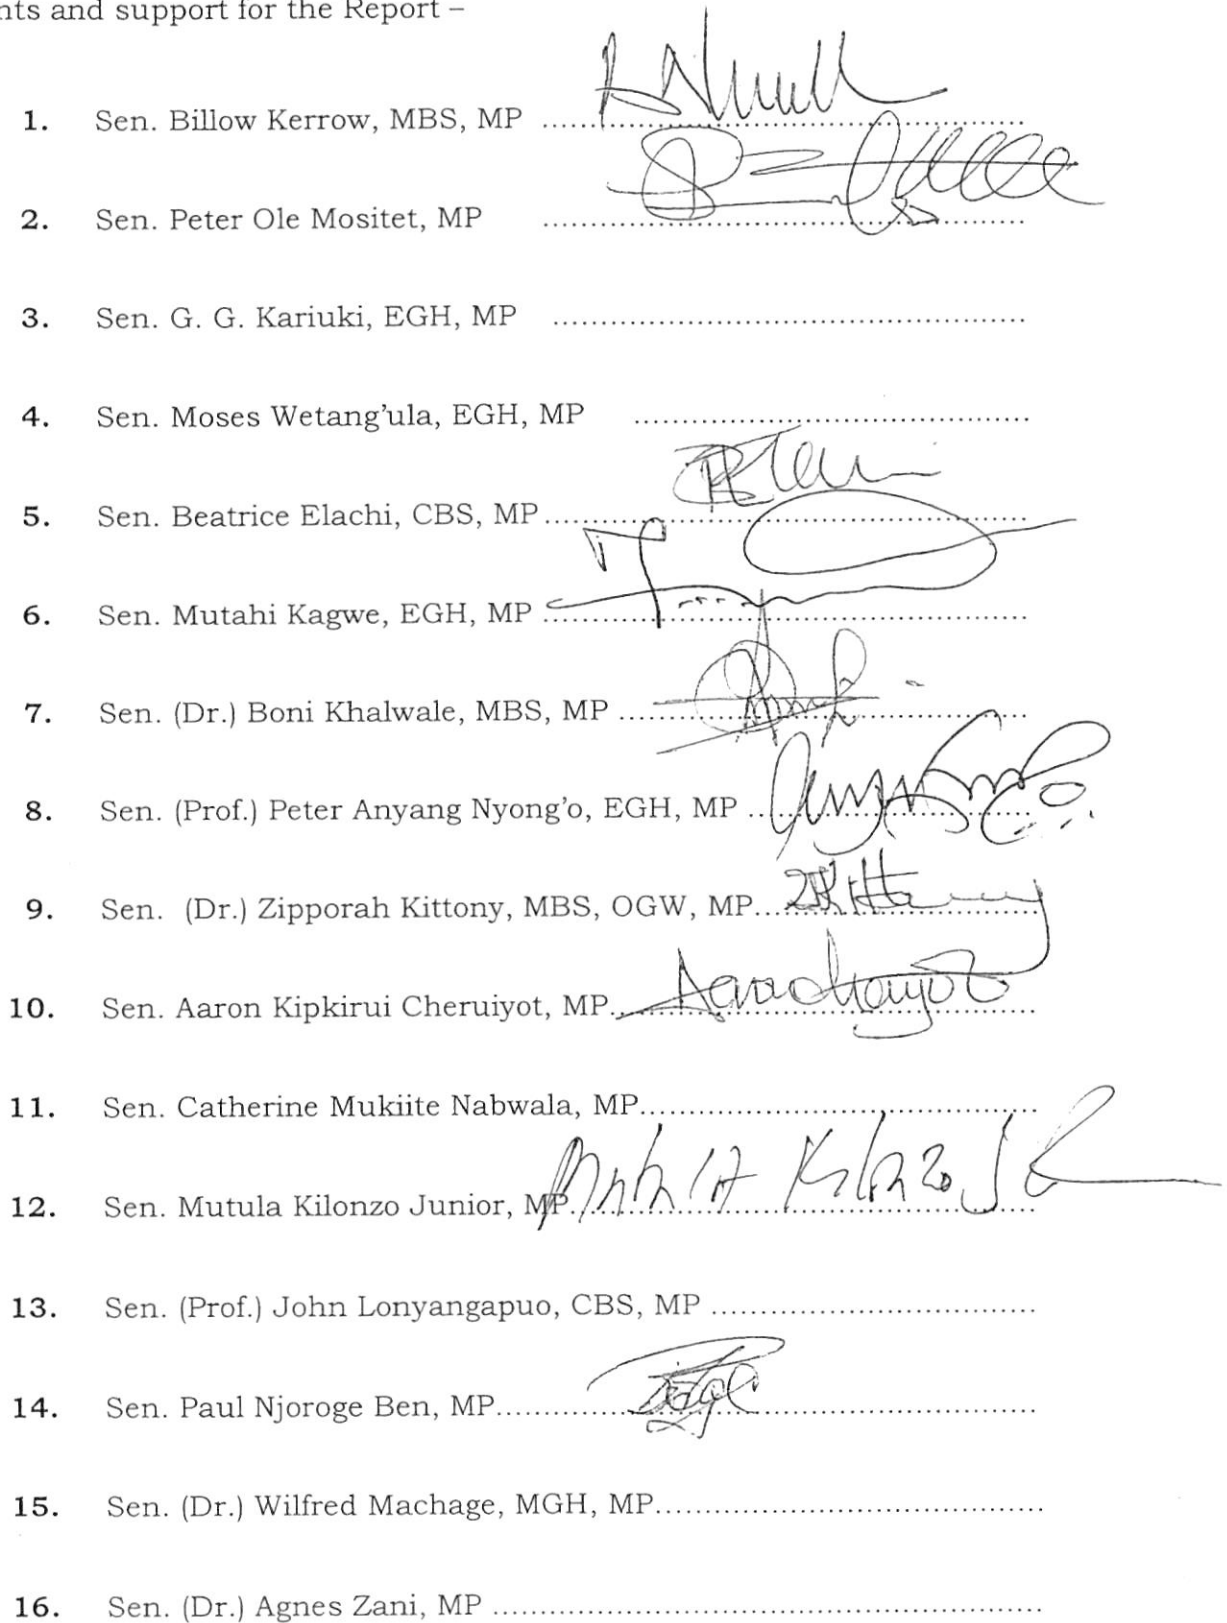 nts and support for the Report –
1. Sen. Billow Kerrow, MBS, MP ..........
2. Sen. Peter Ole Mositet, MP ..........
3. Sen. G. G. Kariuki, EGH, MP ..........
4. Sen. Moses Wetang'ula, EGH, MP ..........
5. Sen. Beatrice Elachi, CBS, MP..........
6. Sen. Mutahi Kagwe, EGH, MP ..........
7. Sen. (Dr.) Boni Khalwale, MBS, MP ..........
8. Sen. (Prof.) Peter Anyang Nyong'o, EGH, MP ..........
9. Sen. (Dr.) Zipporah Kittony, MBS, OGW, MP..........
10. Sen. Aaron Kipkirui Cheruiyot, MP..........
11. Sen. Catherine Mukiite Nabwala, MP..........
12. Sen. Mutula Kilonzo Junior, MP..........
13. Sen. (Prof.) John Lonyangapuo, CBS, MP ..........
14. Sen. Paul Njoroge Ben, MP..........
15. Sen. (Dr.) Wilfred Machage, MGH, MP..........
16. Sen. (Dr.) Agnes Zani, MP ..........